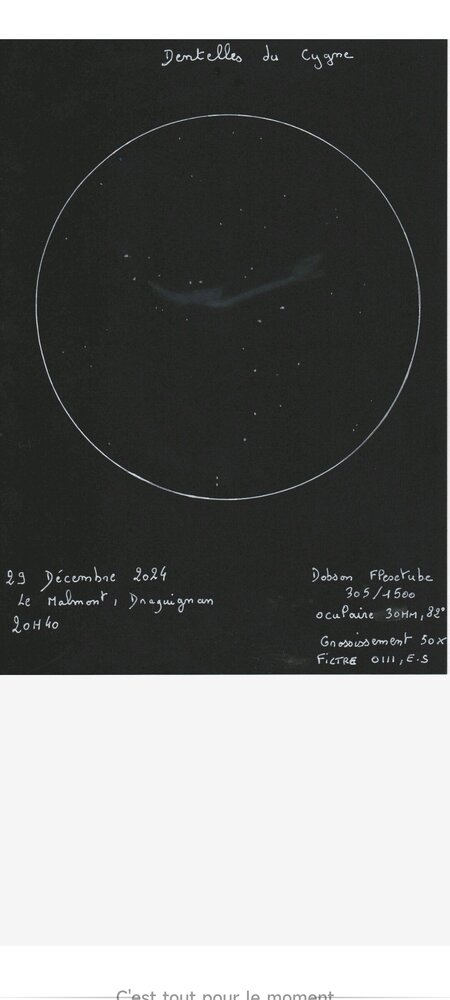 Dentelles du Cygne
29 Décembre 2024
Le Malmont, Draguignan
20H40
Dobson Flextube
305/1500
oculaire 30MM, 82°
Grossissement 50x
FILTRE OIII, E.S
C'est tout pour le moment